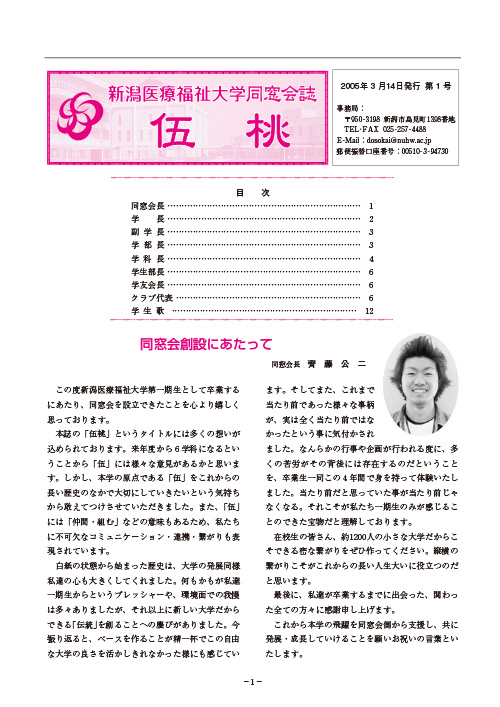 新潟医療福祉大学同窓会誌
伍 桃
2005年 3 月14日発行 第 1 号
事務局：
〒950-3198 新潟市島見町1398番地
TEL･FAX 025-257-4488
E-Mail：dosokai@nuhw.ac.jp
郵便振替口座番号：00510-3-94730
目 次
同窓会長 …………………………………………………………… 1
学 長 …………………………………………………………… 2
副 学 長 …………………………………………………………… 3
学 部 長 …………………………………………………………… 3
学 科 長 …………………………………………………………… 4
学生部長 …………………………………………………………… 6
学友会長 …………………………………………………………… 6
クラブ代表 ………………………………………………………… 6
学 生 歌 ………………………………………………………… 12
同窓会創設にあたって
同窓会長 齊 藤 公 二
この度新潟医療福祉大学第一期生として卒業する
にあたり、同窓会を設立できたことを心より嬉しく
思っております。
本誌の「伍桃」というタイトルには多くの想いが
込められております。来年度から６学科になるとい
うことから「伍」には様々な意見があるかと思いま
す。しかし、本学の原点である「伍」をこれからの
長い歴史のなかで大切にしていきたいという気持ち
から敢えてつけさせていただきました。また、「伍」
には「仲間・組む」などの意味もあるため、私たち
に不可欠なコミュニケーション・連携・繋がりも表
現されています。
白紙の状態から始まった歴史は、大学の発展同様
私達の心も大きくしてくれました。何もかもが私達
一期生からというプレッシャーや、環境面での我慢
は多々ありましたが、それ以上に新しい大学だから
できる「伝統」を創ることへの慶びがありました。今
振り返ると、ベースを作ることが精一杯でこの自由
な大学の良さを活かしきれなかった様にも感じてい
ます。そしてまた、これまで
当たり前であった様々な事柄
が、実は全く当たり前ではな
かったという事に気付かされ
ました。なんらかの行事や企画が行われる度に、多
くの苦労がその背後には存在するのだということ
を、卒業生一同この４年間で身を持って体験いたし
ました。当たり前だと思っていた事が当たり前じゃ
なくなる。それこそが私たち一期生のみが感じるこ
とのできた宝物だと理解しております。
在校生の皆さん、約1200人の小さな大学だからこ
そできる密な繋がりをぜひ作ってください。縦横の
繋がりこそがこれからの長い人生大いに役立つのだ
と思います。
最後に、私達が卒業するまでに出会った、関わっ
た全ての方々に感謝申し上げます。
これから本学の飛躍を同窓会側から支援し、共に
発展・成長していけることを願いお祝いの言葉とい
たします。
－1－